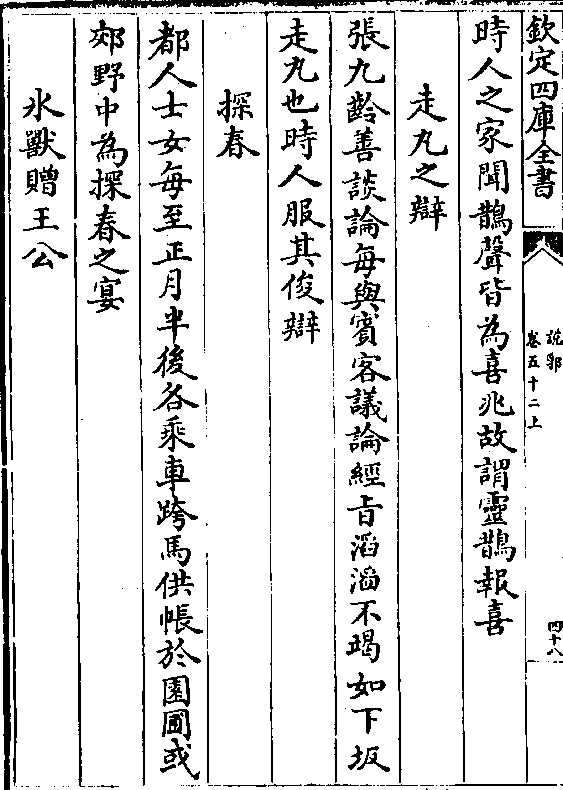 欽定四庫全書
說郛
卷五十二上
四十八
時人之家聞鵲聲皆為喜兆故謂靈鵲報喜
走丸之辯
張九齡善談論每與賓客議論經旨滔滔不竭如下坂
走丸也時人服其俊辯
探春
都人士女每至正月半後各乘車跨馬供帳於園圃或
郊野中為探春之宴
氷獸贈王公